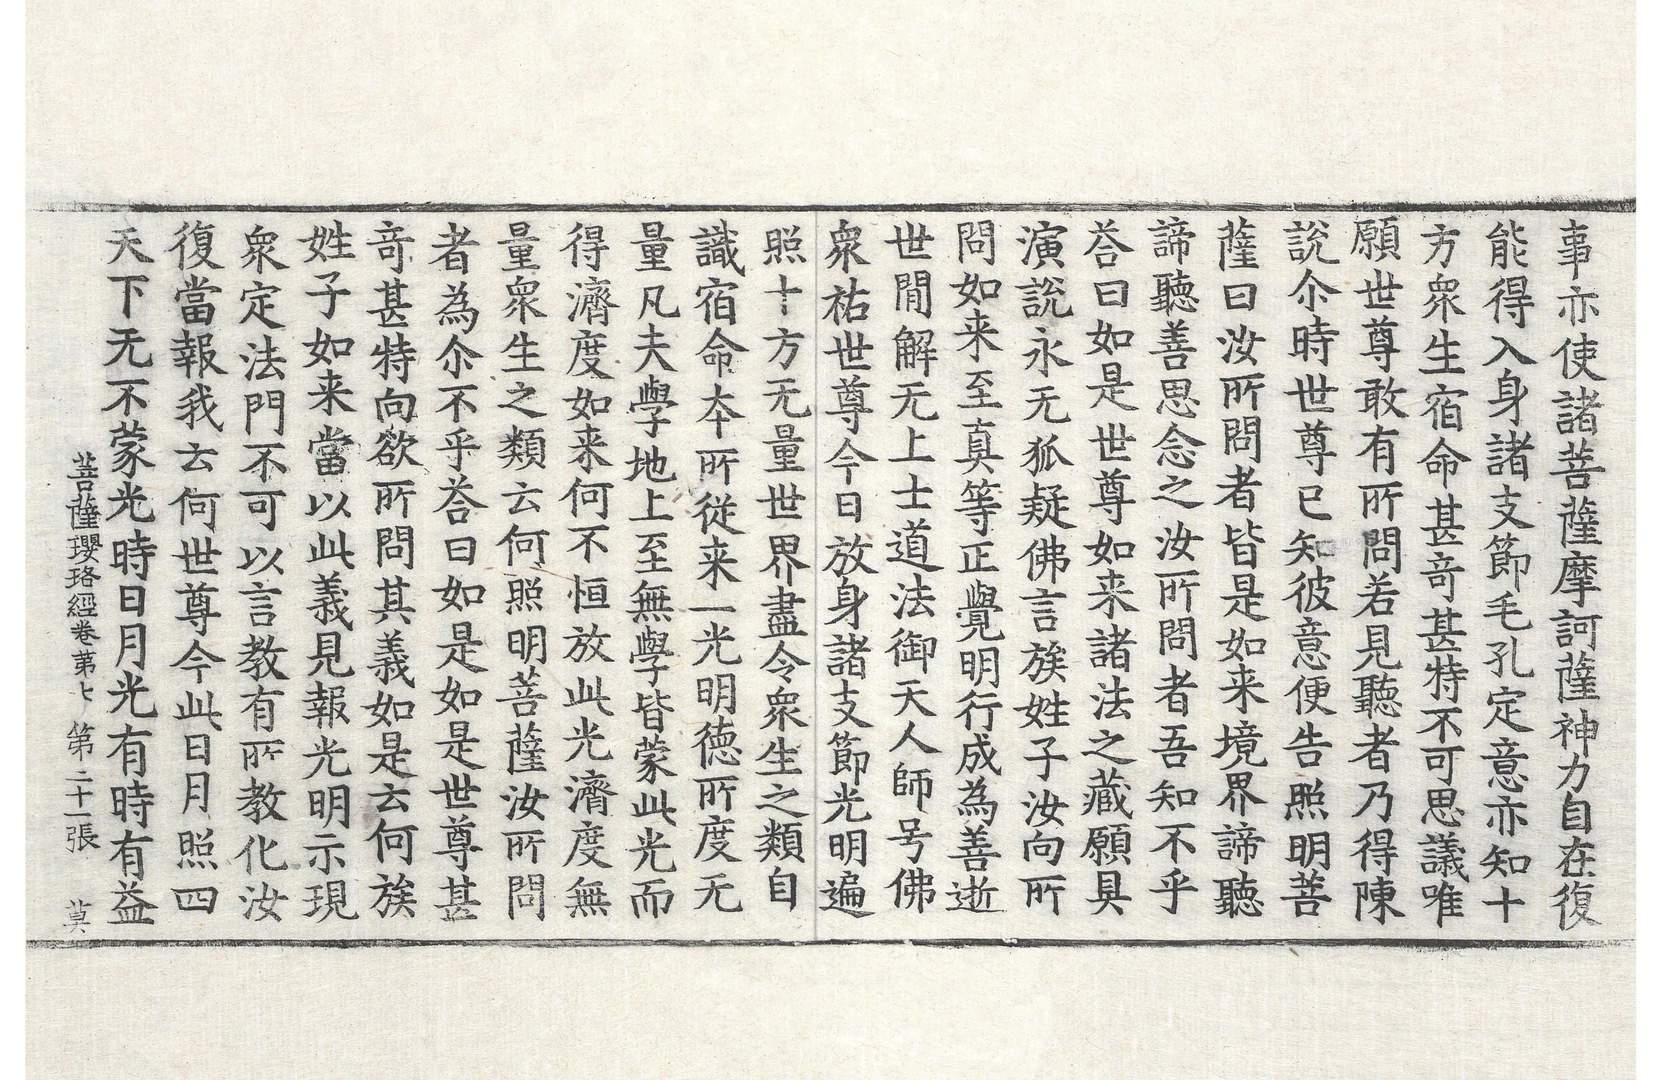 事亦使諸菩薩摩訶薩神力自在復
能得入身諸支節毛孔定意亦知十
方衆生宿命甚竒甚特不可思議唯
願世尊敢有所問若見聽者乃得陳
說尒時世尊已知彼意便告照明菩
薩曰汝所問者皆是如来境界諦聽
諦聽善思念之汝所問者吾知不乎
荅曰如是世尊如来諸法之藏願具
演說永无狐疑佛言族姓子汝向所
問如来至真等正覺明行成為善逝
世閒解无上士道法御天人師号佛
衆祐世尊今日放身諸支節光明遍
照十方无量世界盡令衆生之類自
識宿命夲所從来一光明德所度无
量凡夫學地上至無學皆蒙此光而
得濟度如来何不恒放此光濟度無
量衆生之類云何照明菩薩汝所問
者為尒不乎荅曰如是如是世尊甚
竒甚特向欲所問其義如是云何族
姓子如来當以此義見報光明示現
衆定法門不可以言教有所教化汝
復當報我云何世尊今此日月照四
天下无不蒙光時日月光有時有益
菩薩瓔珞經卷第七　第二十一張　莫